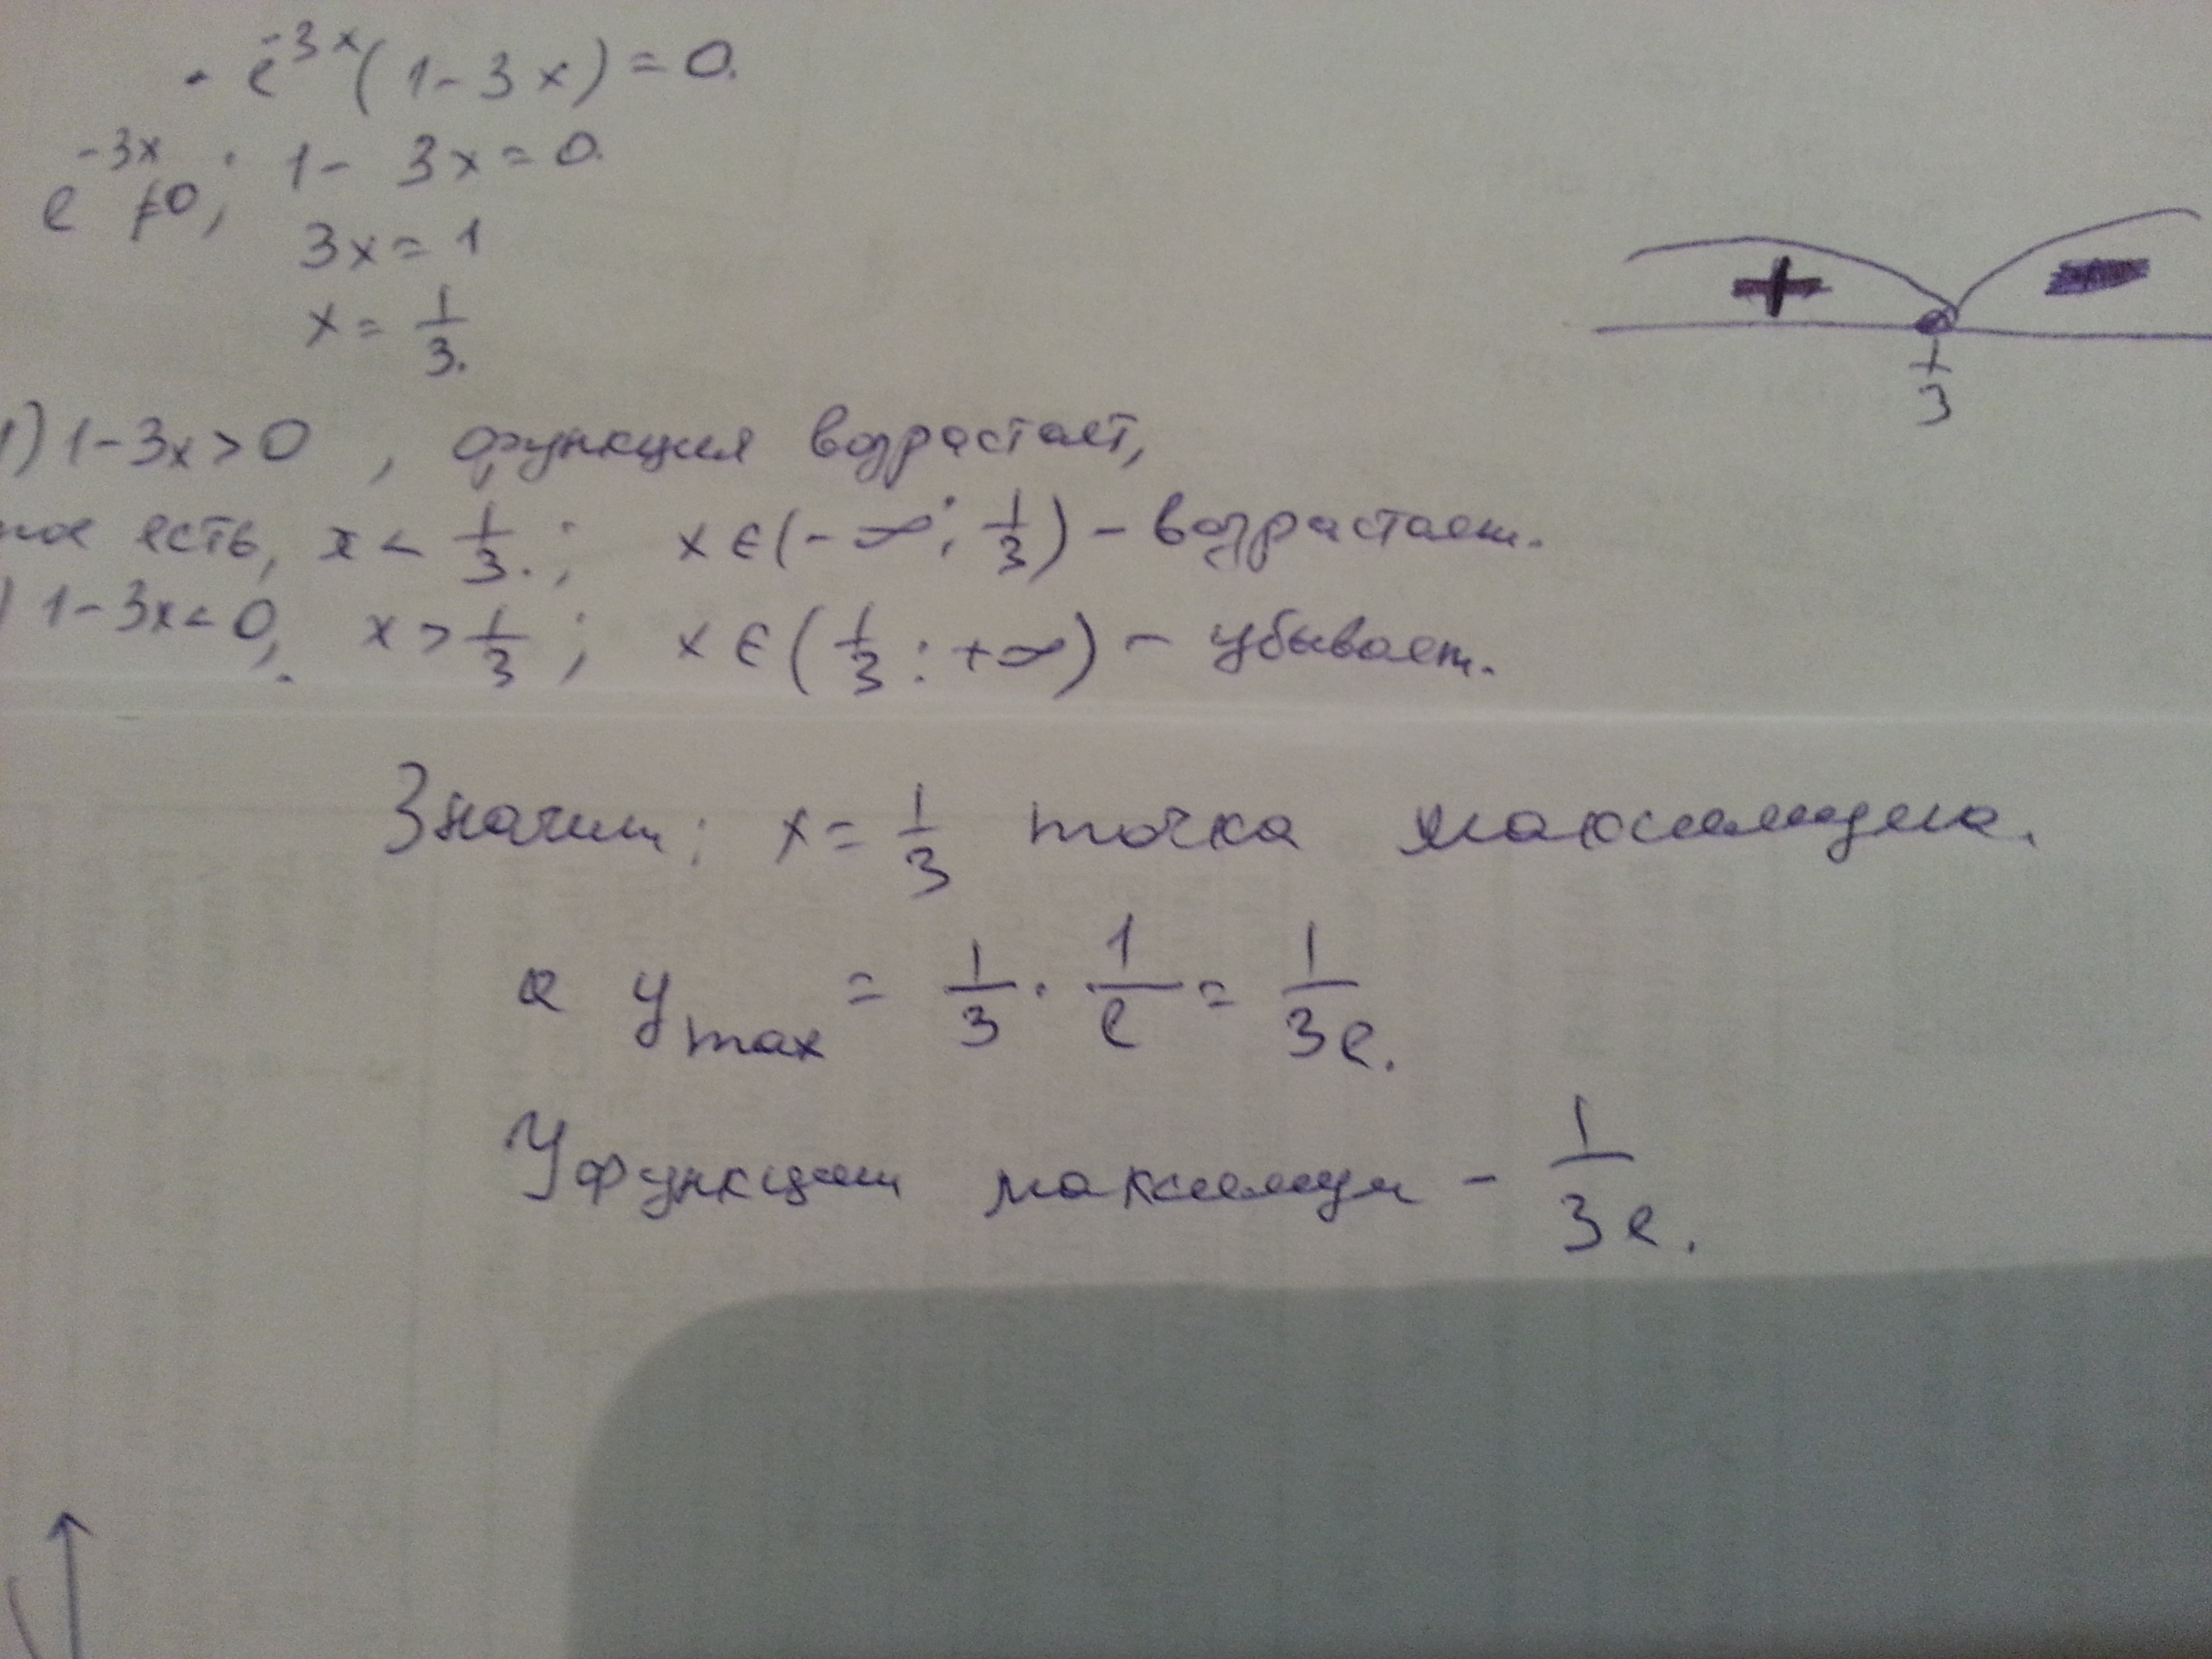 - e^{-3x}(1-3x)=0.
e^{-3x} ≠0; 1- 3x=0.
3x=1
x= 1/3.
+ -
1/3
1) 1-3x>0 , функция возрастает,
есть, x< 1/3.; x∈(-∞; 1/3) - возрастает.
) 1-3x<0, x> 1/3 ; x∈(1/3; +∞) - убывает.
Значит: x= 1/3 точка максимума.
а y_max = 1/3 · 1/e = 1/3e.
У функции максимум - 1/3e.